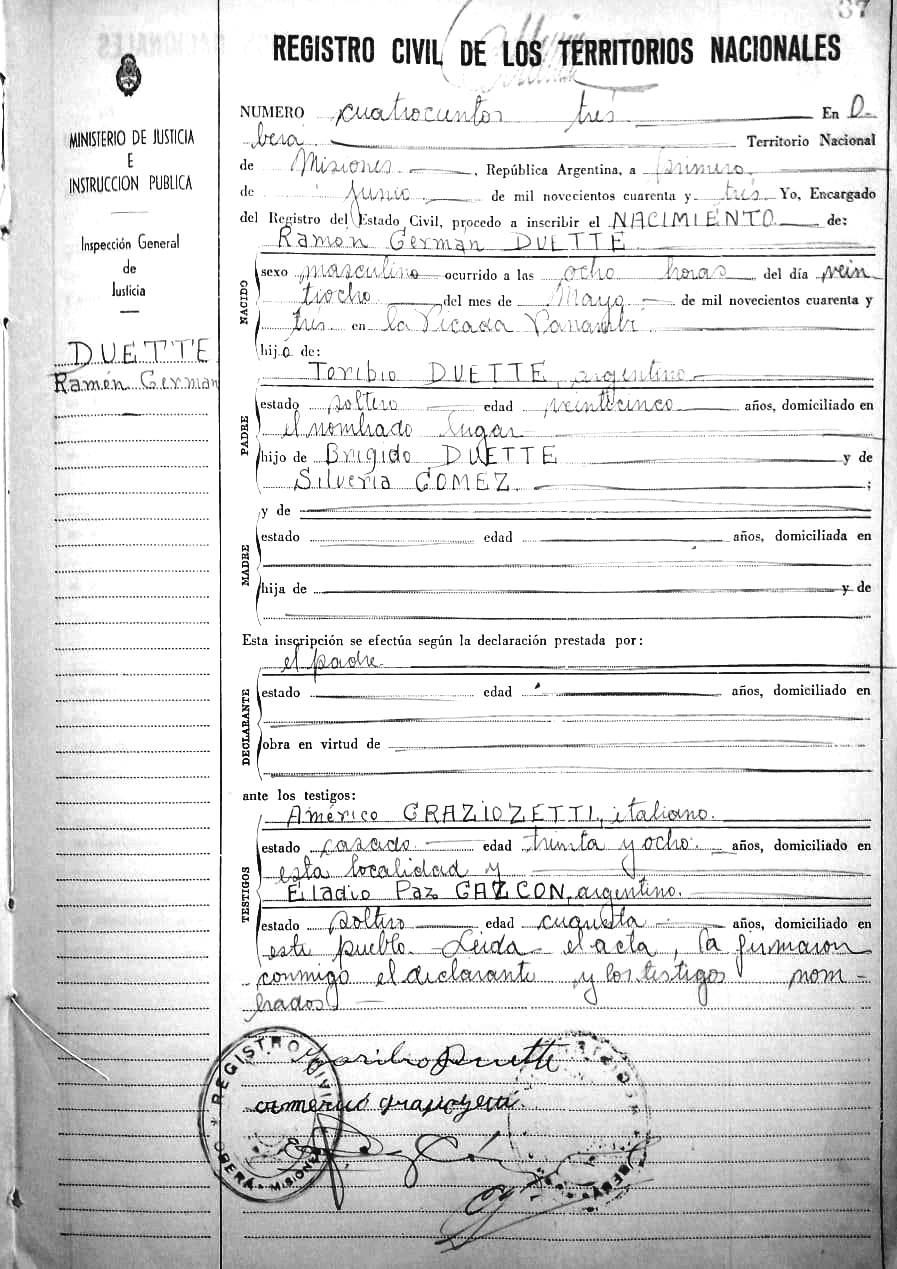 37
REGISTRO CIVIL DE LOS TERRITORIOS NACIONALES
MINISTERIO DE JUSTICIA
E
INSTRUCCION PUBLICA
Inspección General
de
Justicia
DUETTE
Ramón German
NUMERO cuatrocientos trés En O-
bera Territorio Nacional
de Misiones, República Argentina, a primero
de junio de mil novecientos cuarenta y trés Yo, Encargado
del Registro del Estado Civil, procedo a inscribir el NACIMIENTO de:
Ramon German DUETTE
NACIDO
sexo masculino ocurrido a las ocho horas del día vein
tiocho del mes de Mayo de mil novecientos cuarenta y
trés en la Picada Panambi
hijo de:
Toribio DUETTE, argentino
PADRE
estado soltero edad veinticinco años, domiciliado en
el nombrado lugar
hijo de Brigido DUETTE y de
Silveria GOMEZ ;
y de
MADRE
estado edad años, domiciliada en
hija de y de
Esta inscripción se efectúa según la declaración prestada por:
el padre
DECLARANTE
estado edad años, domiciliado en
obra en virtud de
ante los testigos:
TESTIGOS
Américo GRAZIOZETTI, italiano.
estado casado edad trinta y ocho. años, domiciliado en
esta localidad y
Eladio Paz GAZCON, argentino.
estado soltero edad años, domiciliado en
este pueblo. Leida el acta, la firmaron
conmigo el declarante y los testigos nom-
brados
REGISTRO CIVIL
OBERÁ - MISIONES